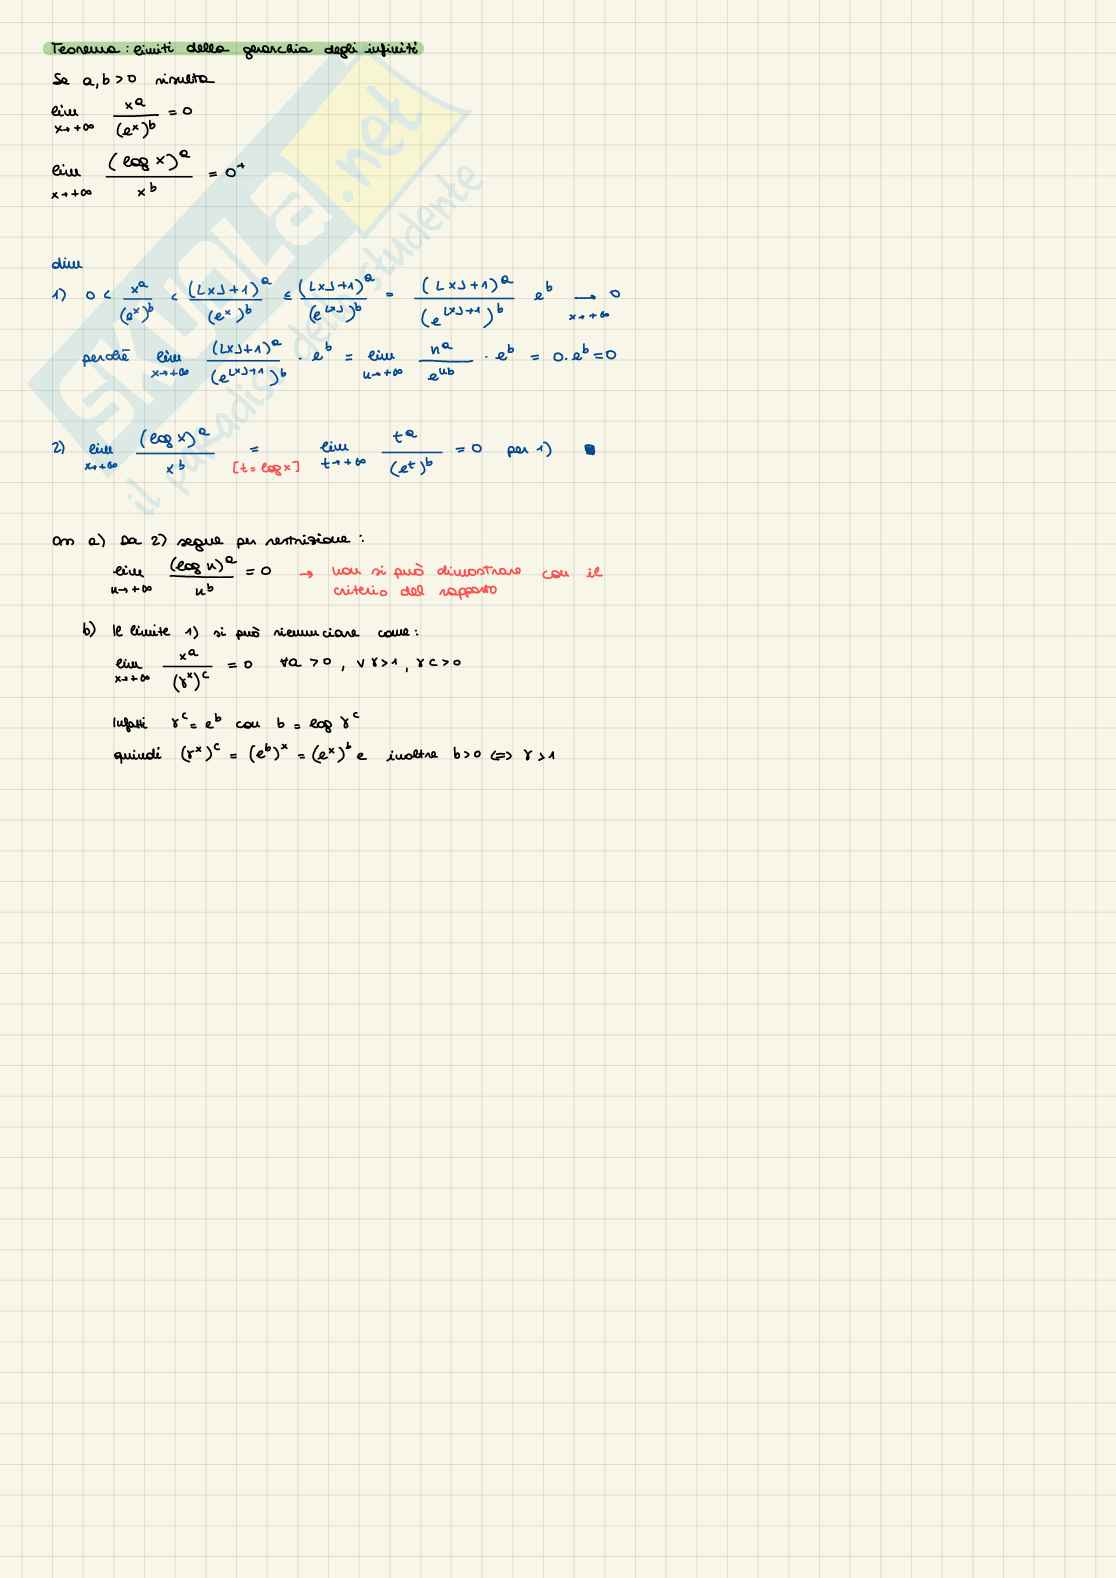 Teorema: limiti della gerarchia degli infiniti
Se a, b > 0 risulta
lim x→+∞ x^a / (e^x)^b = 0
lim x→+∞ (log x)^a / x^b = 0⁺
dim
1) 0 < x^a / (e^x)^b < (⌊x⌋+1)^a / (e^x)^b ≤ (⌊x⌋+1)^a / (e^⌊x⌋)^b = (⌊x⌋+1)^a / (e^(⌊x⌋+1))^b e^b → x→+∞ 0
perché lim x→+∞ (⌊x⌋+1)^a / (e^(⌊x⌋+1))^b · e^b = lim n→+∞ n^a / e^(nb) · e^b = 0 · e^b = 0
2) lim x→+∞ (log x)^a / x^b = [t = log x] lim t→+∞ t^a / (e^t)^b = 0 per 1) ■
oss a) Da 2) segue per restrizione:
lim n→+∞ (log n)^a / n^b = 0 → non si può dimostrare con il
criterio del rapporto
b) Il limite 1) si può rienunciare come:
lim x→+∞ x^a / (γ^x)^c = 0 ∀a > 0, ∀ γ > 1, γ c > 0
Infatti γ^c = e^b con b = log γ^c
quindi (γ^x)^c = (e^b)^x = (e^x)^b e inoltre b > 0 ⟺ γ > 1
SKUOLA.net
il paradiso dello studente